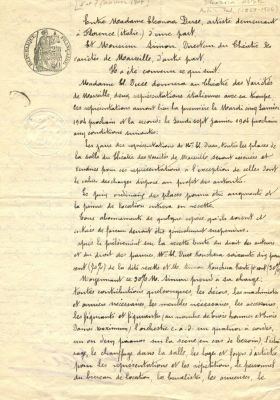 Entre Madame Eleonora Duse, artiste demeurant à
Florence (Italie) d'une part
Et Monsieur Simon Directeur du Théâtre des
Variétés de Marseille, d'autre part
Il a été convenu ce qui suit
Madame El. Duse donnera au Théâtre des Variétés
de Marseille, deux représentations italiennes avec sa troupe
les représentations auront lieu la première le Mardi cinq Janvier
1904 prochain et la seconde le Jeudi sept janvier 1904 prochain
aux conditions suivantes:
Les jours des représentations de Me El. Duse, toutes les places de
la salle du Théâtre des Variétés de Marseille seront
vendues pour ces représentations à l'exception de celles dont
le cahier des charges dispose au profit des autorités.
Le prix ordinaire des places pourra être augmenté et
la prime de location entrera en recette.
Tous abonnements de quelque espèce qu'ils soient et
entrées de faveur devront être généralement suspendus.
Après le prélèvement sur la recette brute du droit des auteurs
et du droit des pauvres, Me El. Duse touchera soixante dix pour
cent (70%) de la dite recette et M. Simon touchera trente pour % (30%)
Moyennant ce 30% Mr. Simon prend à sa charge
toutes contributions quelconques, les décors, les machinistes
et autres nécessaires, les meubles nécessaires, les accessoires
les figurants et figurantes (au nombre de trois hommes et trois
Dames maximum) l'orchestre c. à d. un quatuor à cordes,
ou un bon piano sur la scène (en cas de besoin) l'éclai
rage, le chauffage dans la salle, les loges et foyers d'artistes
pour les représentations et les répétitions, le personnel
du bureau de location, la buraliste, les annonces, le